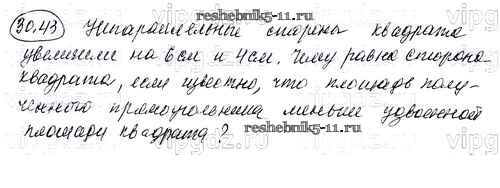 30.43 Непараллельные стороны квадрата
увеличили на 6 см и 4 см. Чему равна сторона
квадрата, если известно, что площадь полу-
ченного прямоугольника меньше удвоенной
площади квадрата?
reshebnik5-11.ru
reshebnik5-11.ru